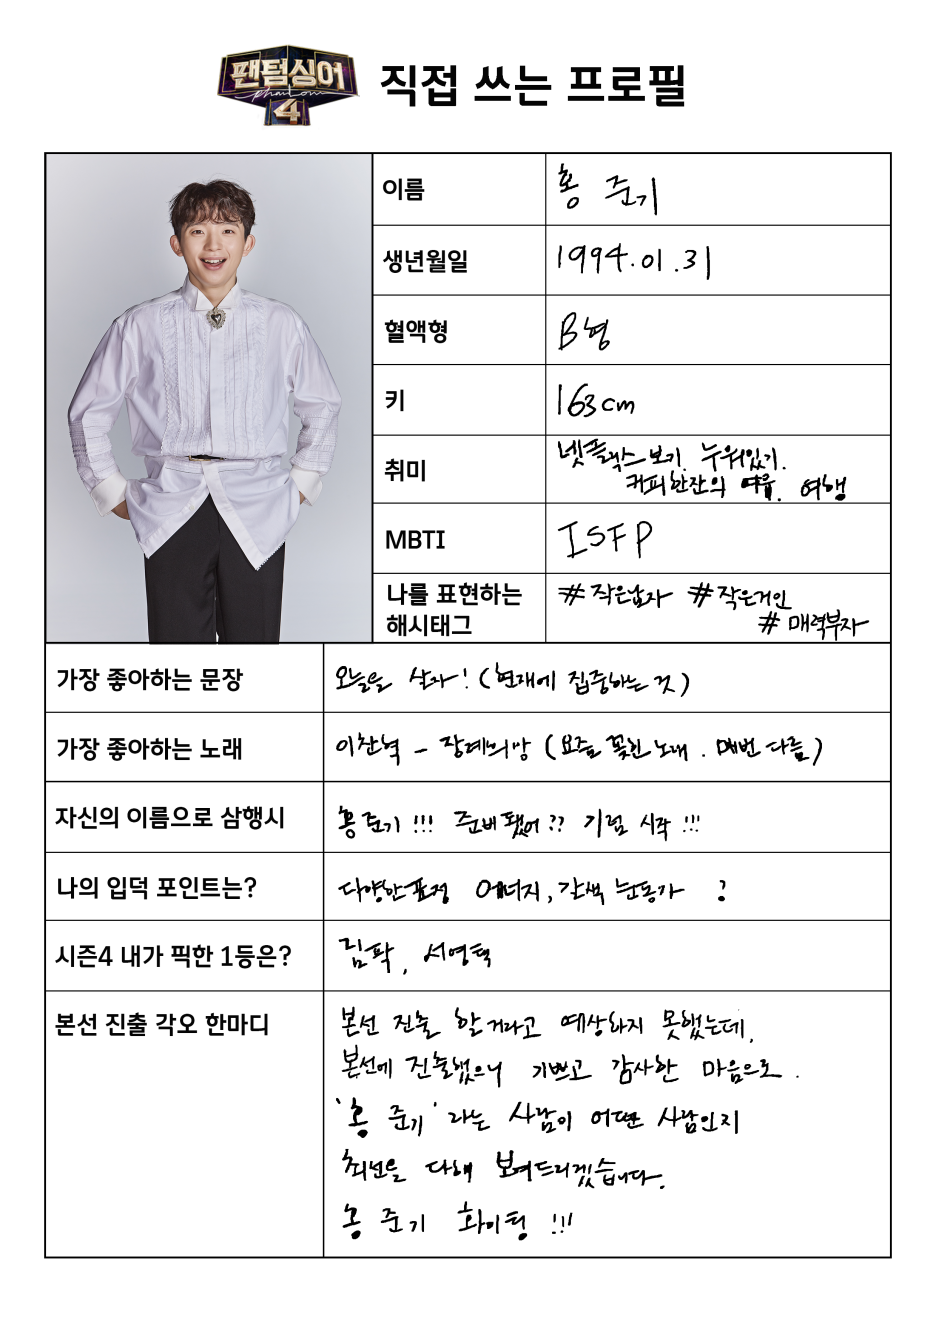 팬텀싱어
Phantom
4
직접 쓰는 프로필
이름 홍 준기
생년월일 1994.01.31
혈액형 B형
키 163cm
취미 넷플릭스보기. 누워있기.
커피한잔의 여유. 여행
MBTI ISFP
나를 표현하는 #작은남자 #작은거인
해시태그 #매력부자
가장 좋아하는 문장 오늘을 살자! (현재에 집중하는 것)
가장 좋아하는 노래 이찬혁 - 장례희망 (요즘 꽂힌 노래. 매번 다름)
자신의 이름으로 삼행시 홍준기!!! 준비됐어?? 기럼 시작!!!
나의 입덕 포인트는? 다양한표정 에너지, 갈색 눈동자 ?
시즌4 내가 픽한 1등은? 김팍, 서영택
본선 진출 각오 한마디 본선 진출 할거라고 예상하지 못했는데,
본선에 진출했으니 기쁘고 감사한 마음으로.
'홍 준기' 라는 사람이 어떤 사람인지
최선을 다해 보여드리겠습니다.
홍 준기 화이팅 !!!